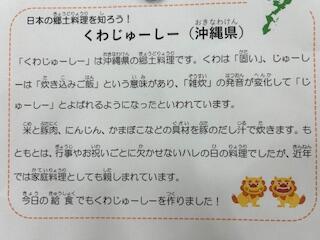 日本の郷土料理を知ろう！
くわじゅーしー（沖縄県）
「くわじゅーしー」は沖縄県の郷土料理です。くわは「固い」、じゅーし
ーは「炊き込みご飯」という意味があり、「雑炊」の発音が変化して「じ
ゅーしー」とよばれるようになったといわれています。
米と豚肉、にんじん、かまぼこなどの具材を豚のだし汁で炊きます。も
ともとは、行事やお祝いごとに欠かせないハレの日の料理でしたが、近年
では家庭料理としても親しまれています。
今日の給食でもくわじゅーしーを作りました！